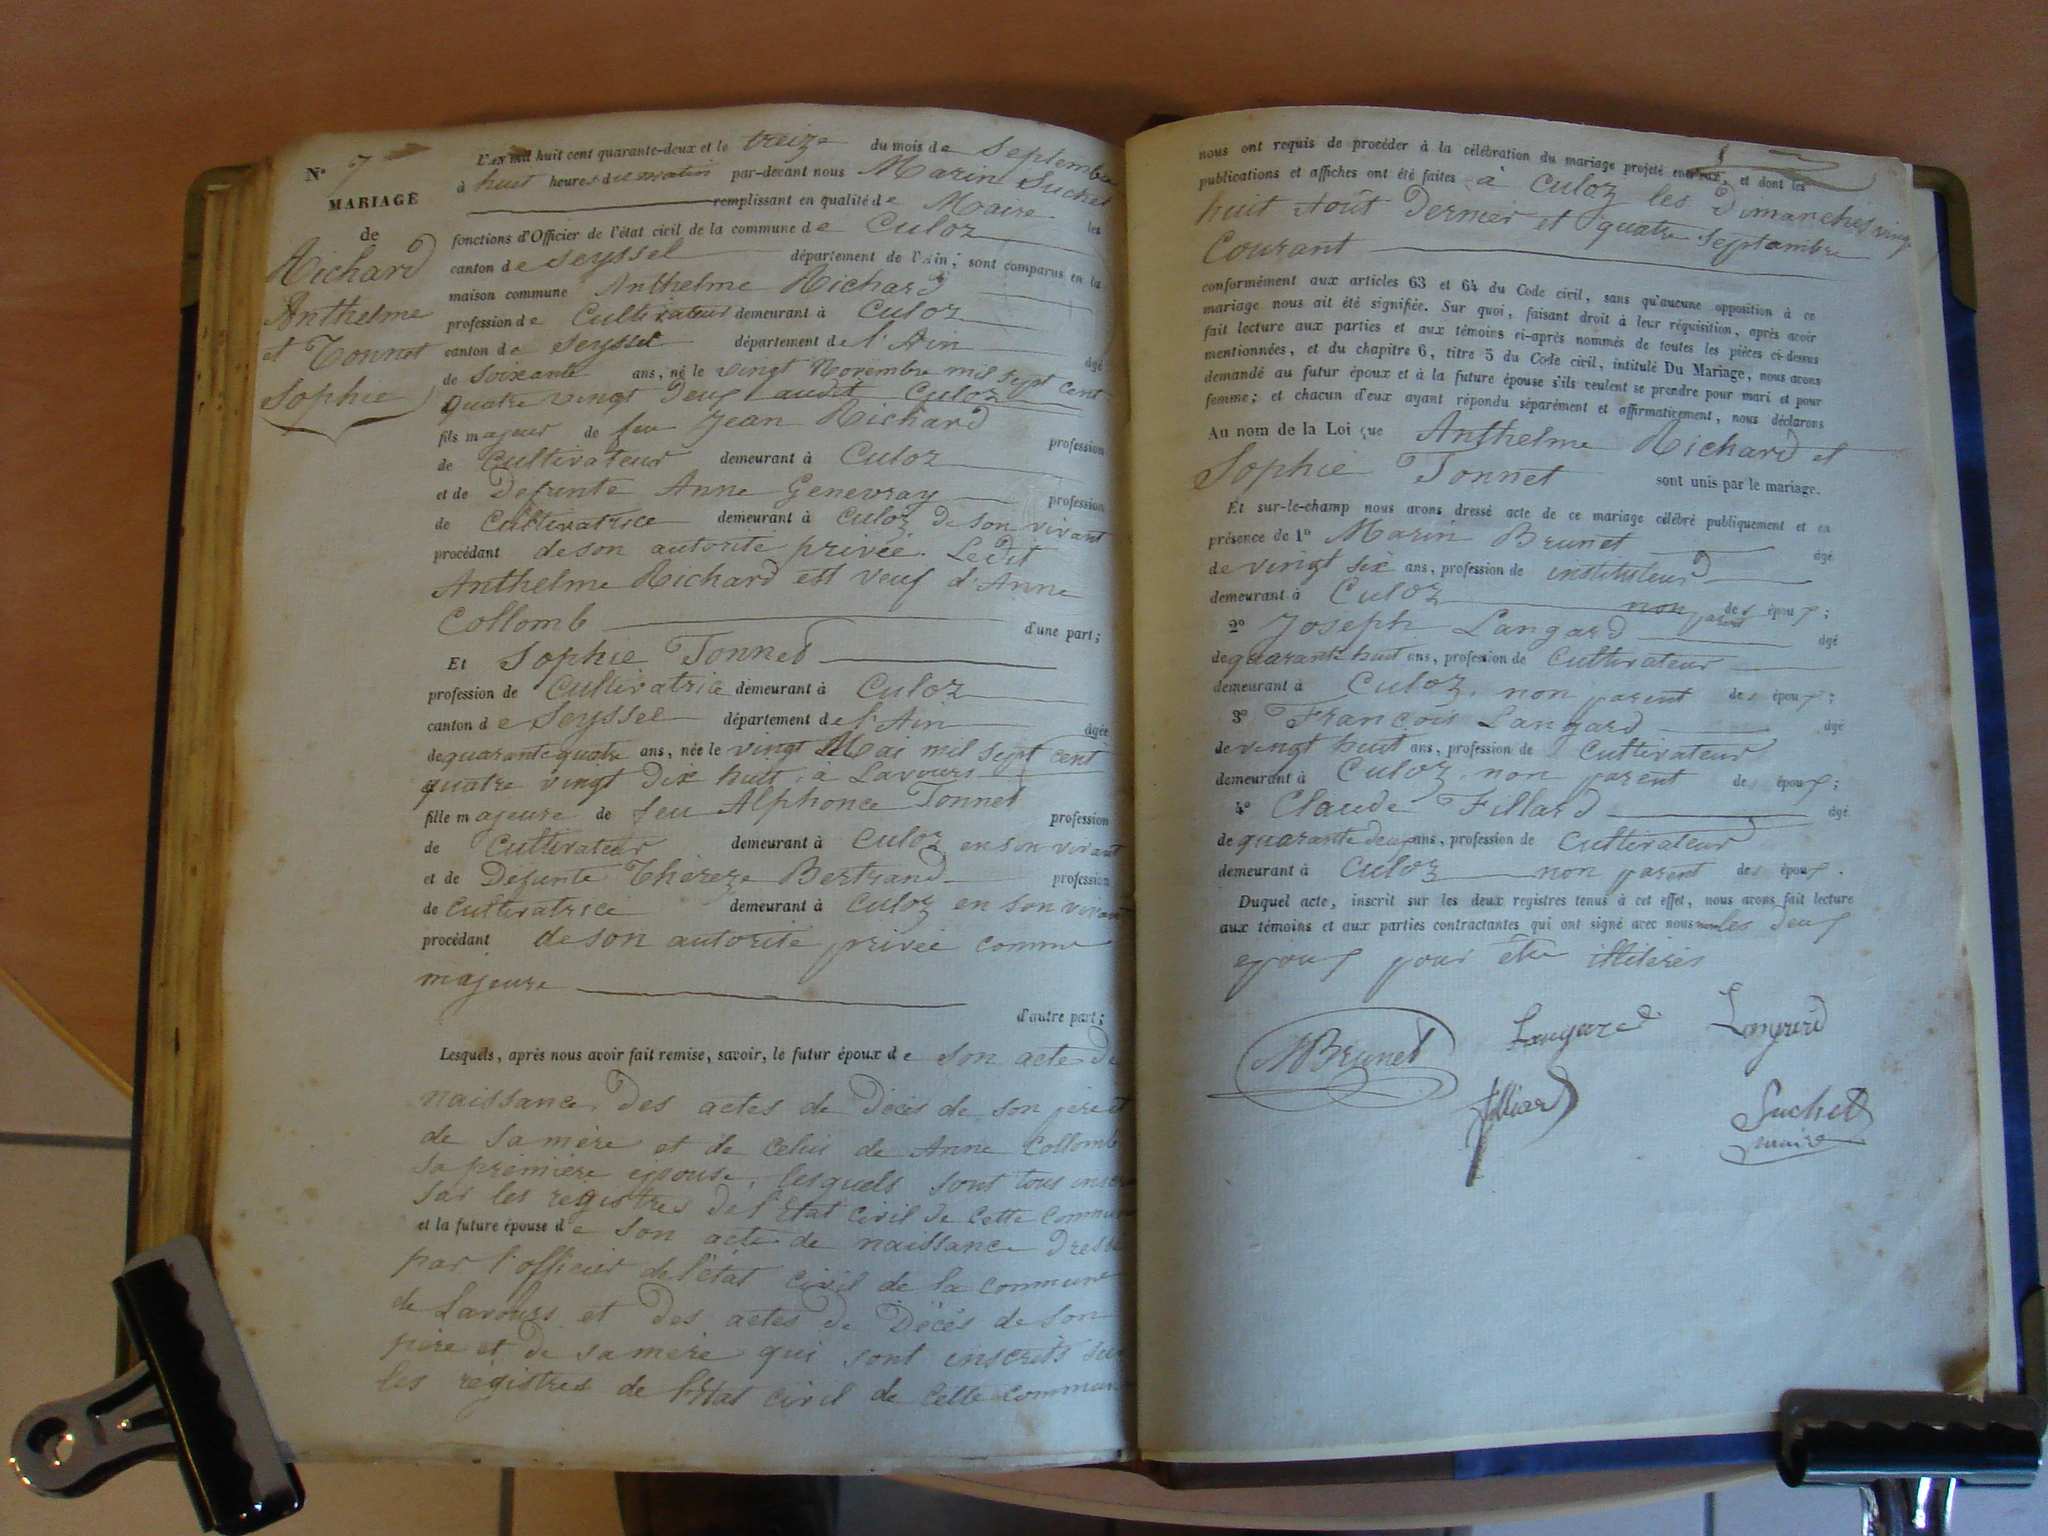 N° 7
MARIAGE
de
Richard
Anthelme
et Tonnet
Sophie
L'AN mil huit cent quarante-deux et le treize du mois de Septembre
à huit heures du matin par-devant nous Marin Suchet
remplissant en qualité de Maire les
fonctions d'Officier de l'état civil de la commune de Culoz
canton de Seyssel département de l'Ain; sont comparus en la
maison commune Anthelme Richard
profession de Cultivateur demeurant à Culoz
canton de Seyssel département de l'Ain âgé
de Soixante ans, né le vingt Novembre mil sept cent
quatre vingt deux audit Culoz
fils majeur de feu Jean Richard profession
de Cultivateur demeurant à Culoz
et de Defunte Anne Genevray profession
de Cultivatrice demeurant à Culoz de son vivant
procédant de son autorité privée. Ledit
Anthelme Richard est veuf d'Anne
Collomb d'une part;
Et Sophie Tonnet
profession de Cultivatrice demeurant à Culoz
canton de Seyssel département de l'Ain âgée
de quarante quatre ans, née le vingt Mai mil sept cent
quatre vingt dix huit, à Lavours
fille majeure de feu Alphonce Tonnet profession
de Cultivateur demeurant à Culoz en son vivant
et de Defunte Thérèze Bertrand profession
de Cultivatrice demeurant à Culoz en son vivant
procédant de son autorité privée comme
majeure
d'autre part;
Lesquels, après nous avoir fait remise, savoir, le futur époux de son acte de
naissance, des actes de décès de son père et
de sa mère et de celui de Anne Collomb
sa première épouse, lesquels sont tous inscrits
sur les registres de l'Etat civil de cette commune
et la future épouse de son acte de naissance dressé
par l'officier de l'état civil de la commune
de Lavours et des actes de Décès de son
père et de sa mère qui sont inscrits sur
les régistres de l'Etat civil de cette commune
nous ont requis de procéder à la célébration du mariage projeté entr'eux, et dont les
publications et affiches ont été faites à Culoz les Dimanches vingt
huit Août Dernier et quatre Septembre
Courant
conformément aux articles 63 et 64 du Code civil, sans qu'aucune opposition à ce
mariage nous ait été signifiée. Sur quoi, faisant droit à leur réquisition, après avoir
fait lecture aux parties et aux témoins ci-après nommés de toutes les pièces ci-dessus
mentionnées, et du chapitre 6, titre 5 du Code civil, intitulé Du Mariage, nous avons
demandé au futur époux et à la future épouse s'ils veulent se prendre pour mari et pour
femme; et chacun d'eux ayant répondu séparément et affirmativement, nous déclarons
Au nom de la Loi que Anthelme Richard et
Sophie Tonnet sont unis par le mariage.
Et sur-le-champ nous avons dressé acte de ce mariage célébré publiquement et en
présence de 1° Marin Brunet âgé
de vingt six ans, profession de instituteur
demeurant à Culoz non parent des époux;
2° Joseph Langard âgé
de quarante huit ans, profession de Cultivateur
demeurant à Culoz, non parent des époux;
3° François Langard âgé
de vingt huit ans, profession de Cultivateur
demeurant à Culoz, non parent des époux;
4° Claude Fillard âgé
de quarante deux ans, profession de Cultivateur
demeurant à Culoz non parent des époux.
Duquel acte, inscrit sur les deux registres tenus à cet effet, nous avons fait lecture
aux témoins et aux parties contractantes qui ont signé avec nous non les deux
epoux pour être illitérés
MBrunet Langard Langard
filliard Suchet
maire